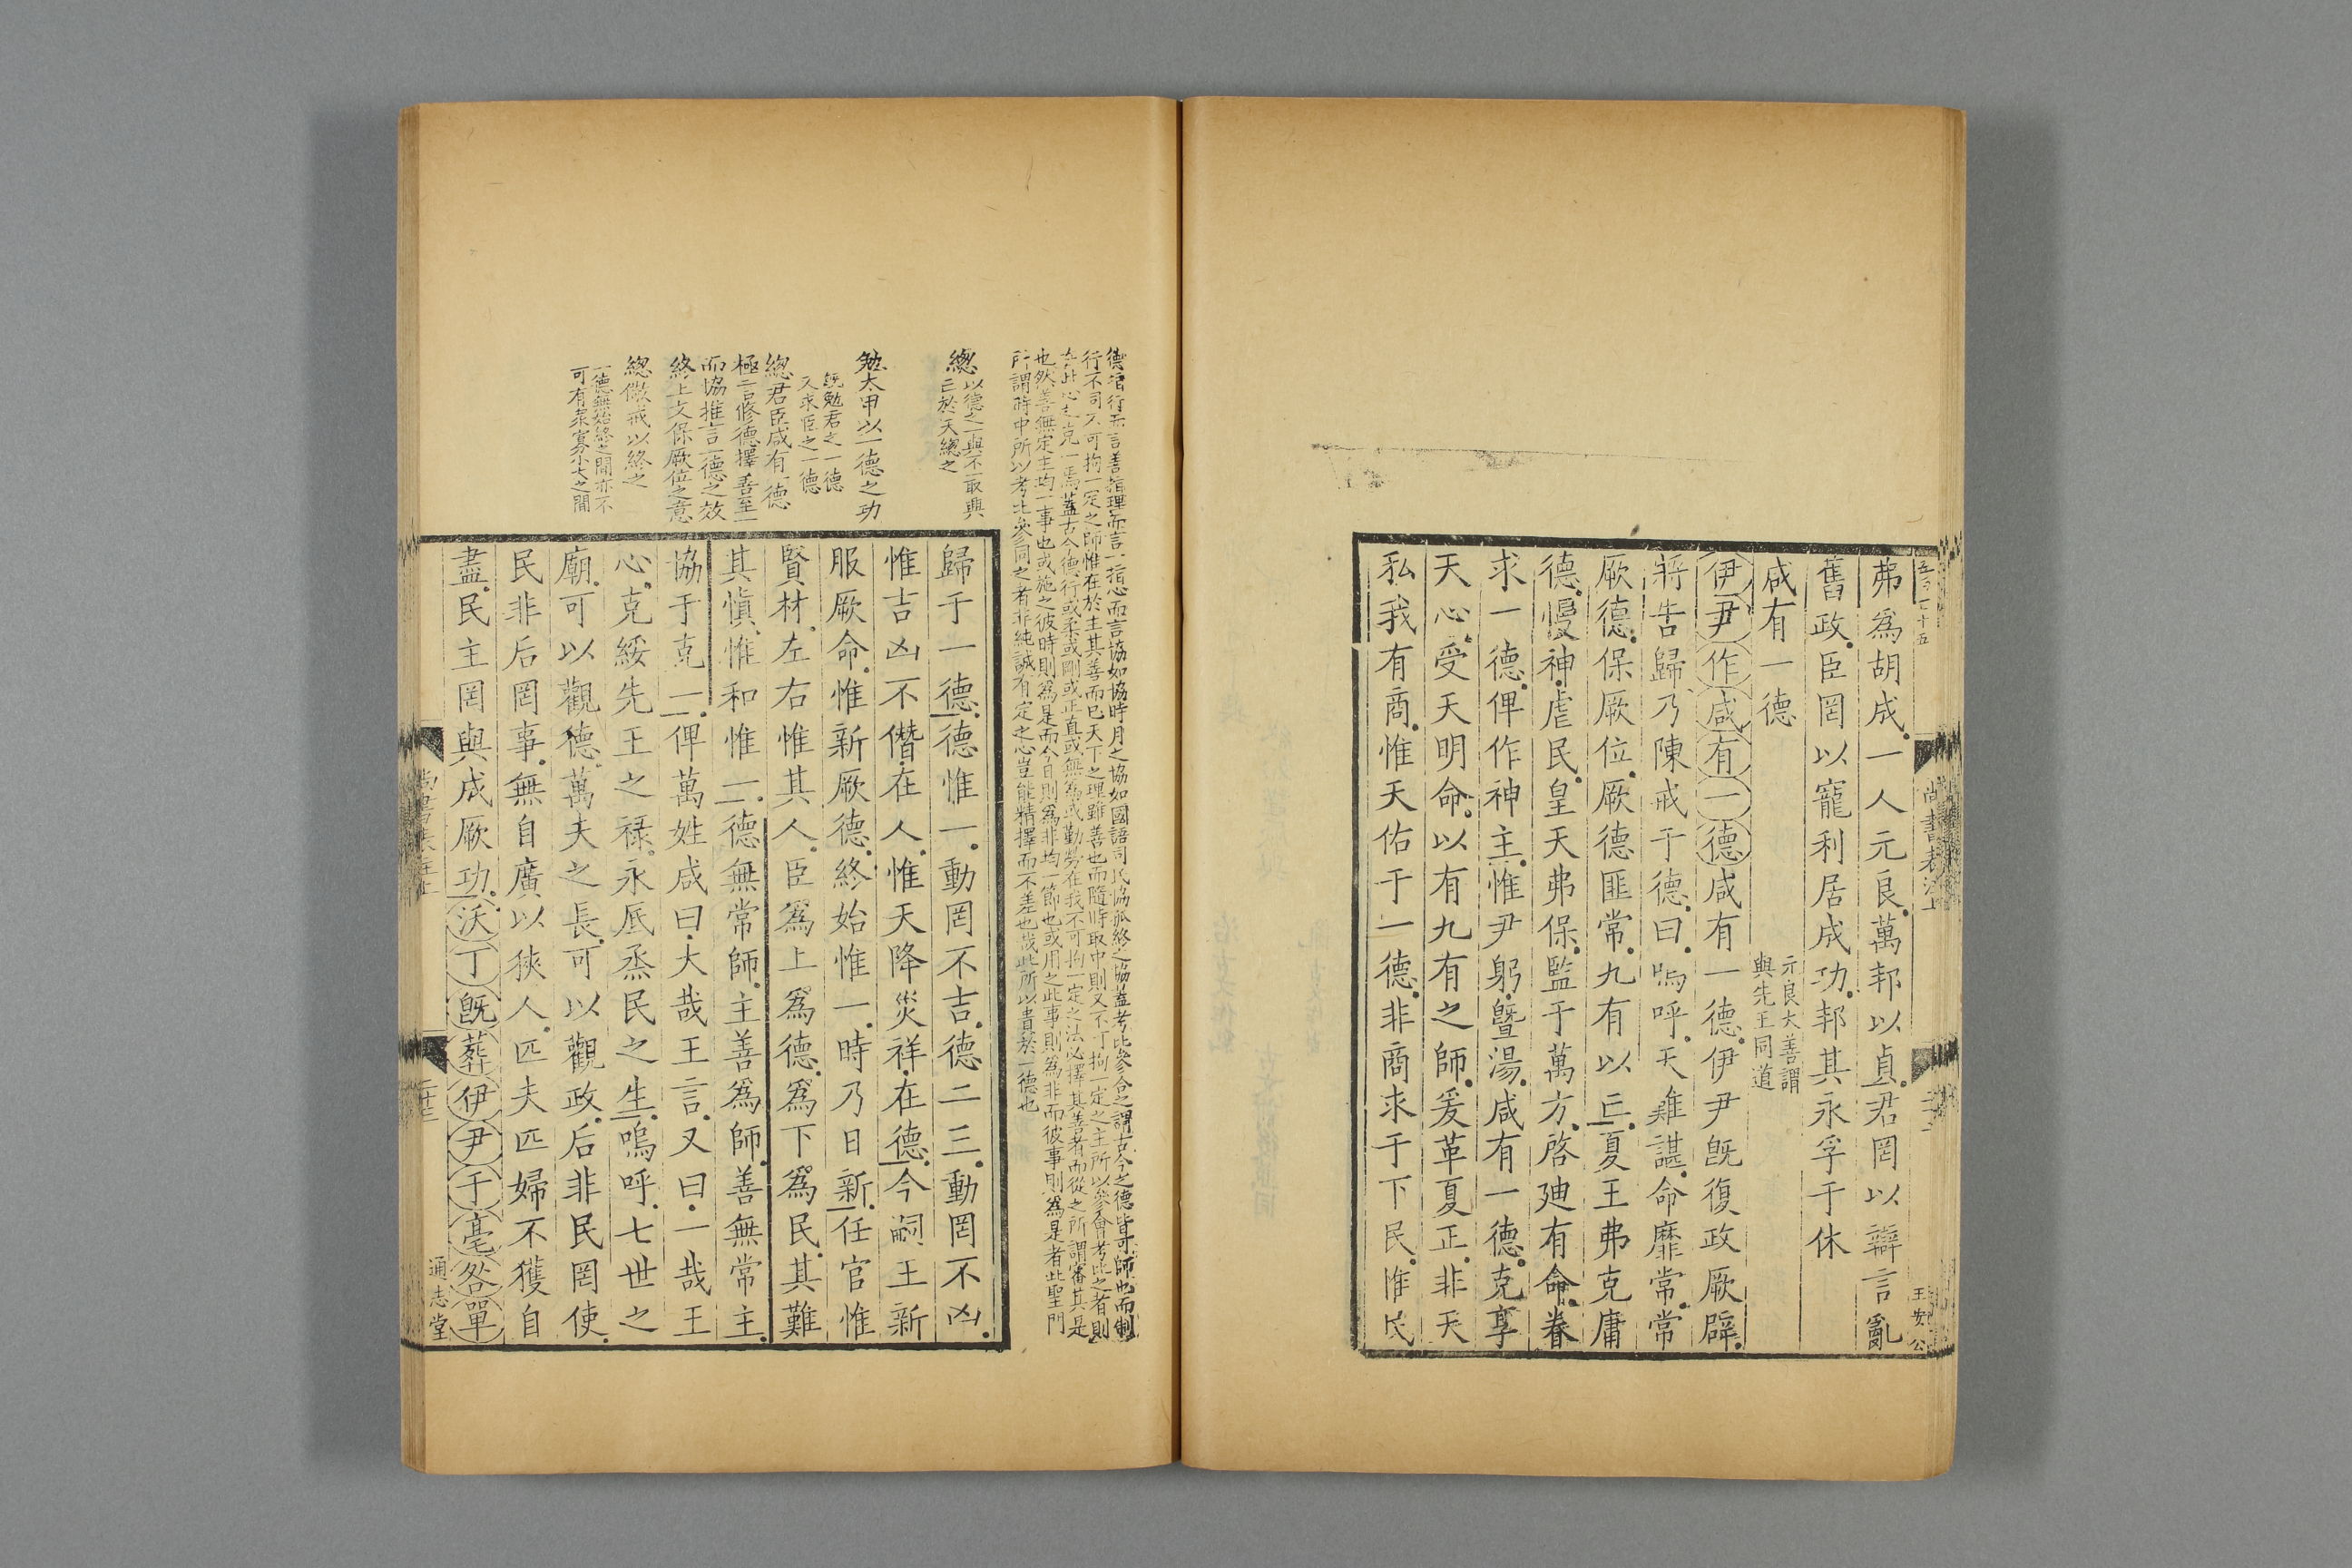 弗爲胡成一人元良萬邦以貞君罔以辯言亂
舊政臣罔以寵利居成功邦其永孚于休
咸有一德
元良大善謂
與先王同道
伊尹作咸有一德咸有一德伊尹旣復政厥辟
將告歸乃陳戒于德曰嗚呼天難諶命靡常常
厥德保厥位厥德匪常九有以亡夏王弗克庸
德慢神虐民皇天弗保監于萬方啓迪有命眷
求一德俾作神主惟尹躬曁湯咸有一德克享
天心受天明命以有九有之師爰革夏正非天
私我有商惟天佑于一德非商求于下民惟民
王安公
德指行而言善指理而言一指心而言協如協時月之協如國語司民協孤終之協蓋考比參合之謂古今之德皆可師也而制
行不同不可拘一定之師惟在於主其善而已天下之理雖善也而隨時取中則又不可拘一定之主所以參會考比之者則
在此心之克一焉蓋古今德行或柔或剛或正直或無爲或勤勞在我不可拘一定之法必擇其善者而從之所謂審其是
也然善無定主均一事也或施之彼時則爲是而今日則爲非均一節也或用之此事則爲非而彼事則爲是者此聖門
所謂時中所以考比參同之者非純誠有定之心豈能精擇而不差也哉此所以貴於一德也
總
以德之一與不一取與
亡於天總之
勉太甲以一德之功
旣勉君之一德
又求臣之一德
總君臣咸有一德
極言修德擇善至一
而協推言一德之效
終上文保厥位之意
總儆戒以終之
一德無始終之間亦不
可有衆寡小大之間
歸于一德德惟一動罔不吉德二三動罔不凶
惟吉凶不僭在人惟天降災祥在德今嗣王新
服厥命惟新厥德終始惟一時乃日新任官惟
賢材左右惟其人臣爲上爲德爲下爲民其難
其愼惟和惟一德無常師主善爲師善無常主
協于克一俾萬姓咸曰大哉王言又曰一哉王
心克綏先王之祿永厎烝民之生嗚呼七世之
廟可以觀德萬夫之長可以觀政后非民罔使
民非后罔事無自廣以狹人匹夫匹婦不獲自
盡民主罔與成厥功沃丁旣葬伊尹于亳咎單
通志堂